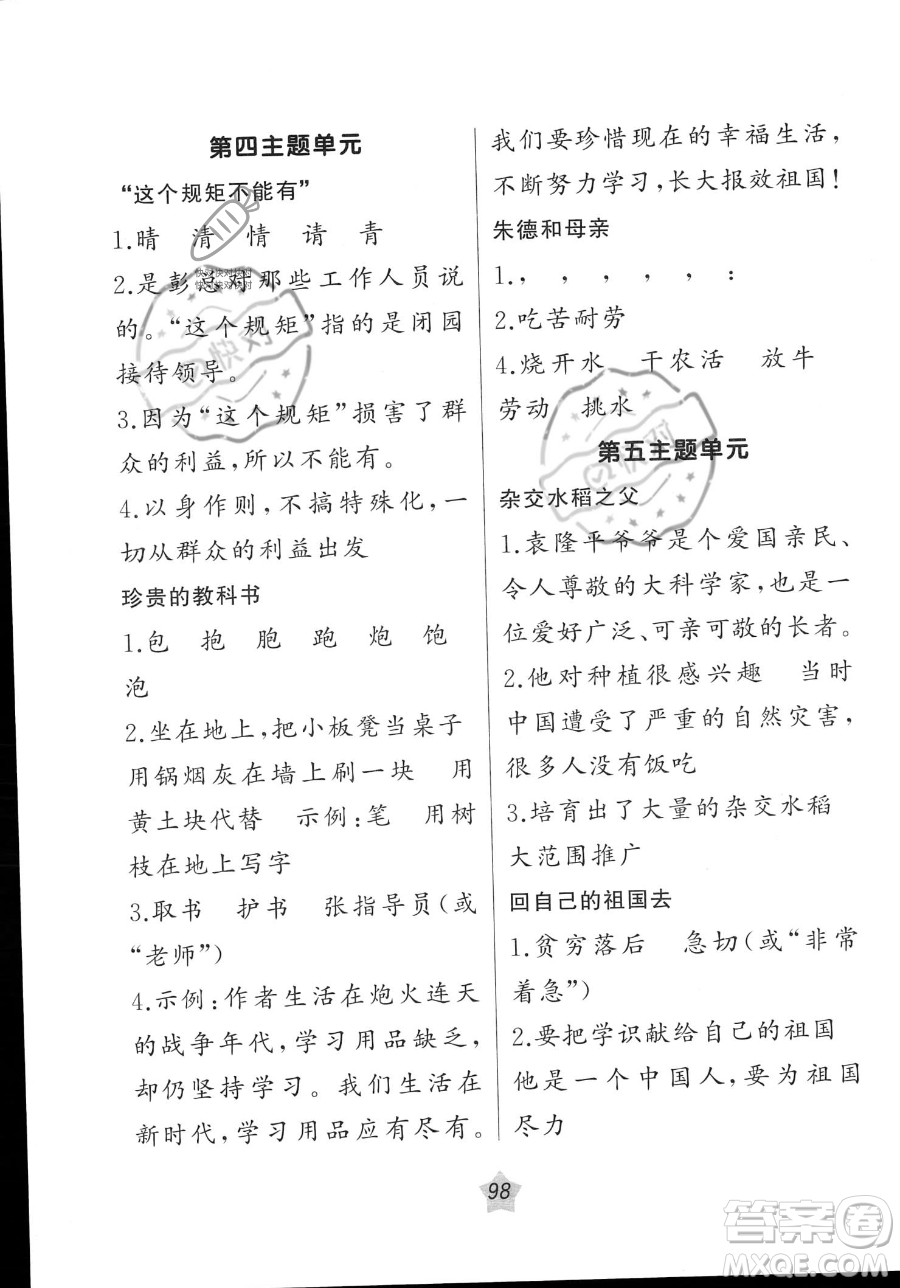 第四主题单元
“这个规矩不能有”
1.晴 清 情 请 青
2.是彭总对那些工作人员说
的。“这个规矩”指的是闭园
接待领导。
3.因为“这个规矩”损害了群
众的利益,所以不能有。
4.以身作则,不搞特殊化,一
切从群众的利益出发
珍贵的教科书
1.包 抱 胞 跑 炮 饱
泡
2.坐在地上,把小板凳当桌子
用锅烟灰在墙上刷一块 用
黄土块代替 示例:笔 用树
枝在地上写字
3.取书 护书 张指导员(或
“老师”)
4.示例:作者生活在炮火连天
的战争年代,学习用品缺乏,
却仍坚持学习。我们生活在
新时代,学习用品应有尽有。
我们要珍惜现在的幸福生活,
不断努力学习,长大报效祖国!
朱德和母亲
1., , , , , :
2.吃苦耐劳
4.烧开水 干农活 放牛
劳动 挑水
第五主题单元
杂交水稻之父
1.袁隆平爷爷是个爱国亲民、
令人尊敬的大科学家,也是一
位爱好广泛、可亲可敬的长者。
2.他对种植很感兴趣 当时
中国遭受了严重的自然灾害,
很多人没有饭吃
3.培育出了大量的杂交水稻
大范围推广
回自己的祖国去
1.贫穷落后 急切(或“非常
着急”)
2.要把学识献给自己的祖国
他是一个中国人,要为祖国
尽力
98
快对快对快对
快对快对快对
快对
快对
答案圈
MXQE.COM